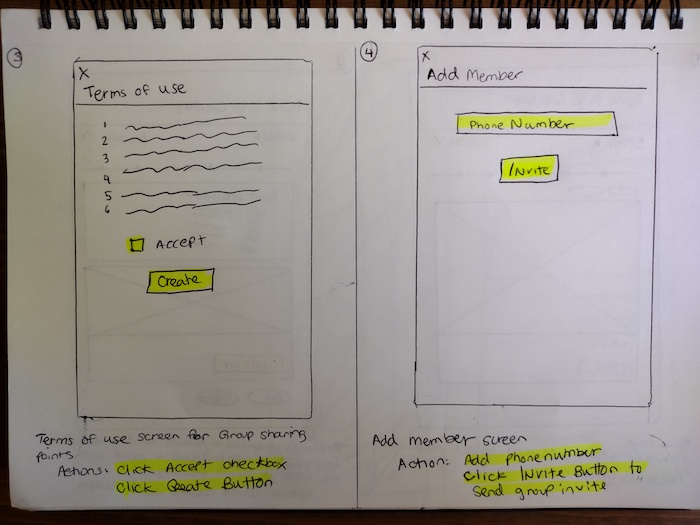 3
X
Terms of use
1
2
3
4
5
6
Accept
Create
Terms of use screen for Group sharing
points.
Actions: Click Accept checkbox
Click Create Button
4
X
Add Member
Phone Number
Invite
Add member screen
Action: Add phone number
Click Invite Button to
send group invite